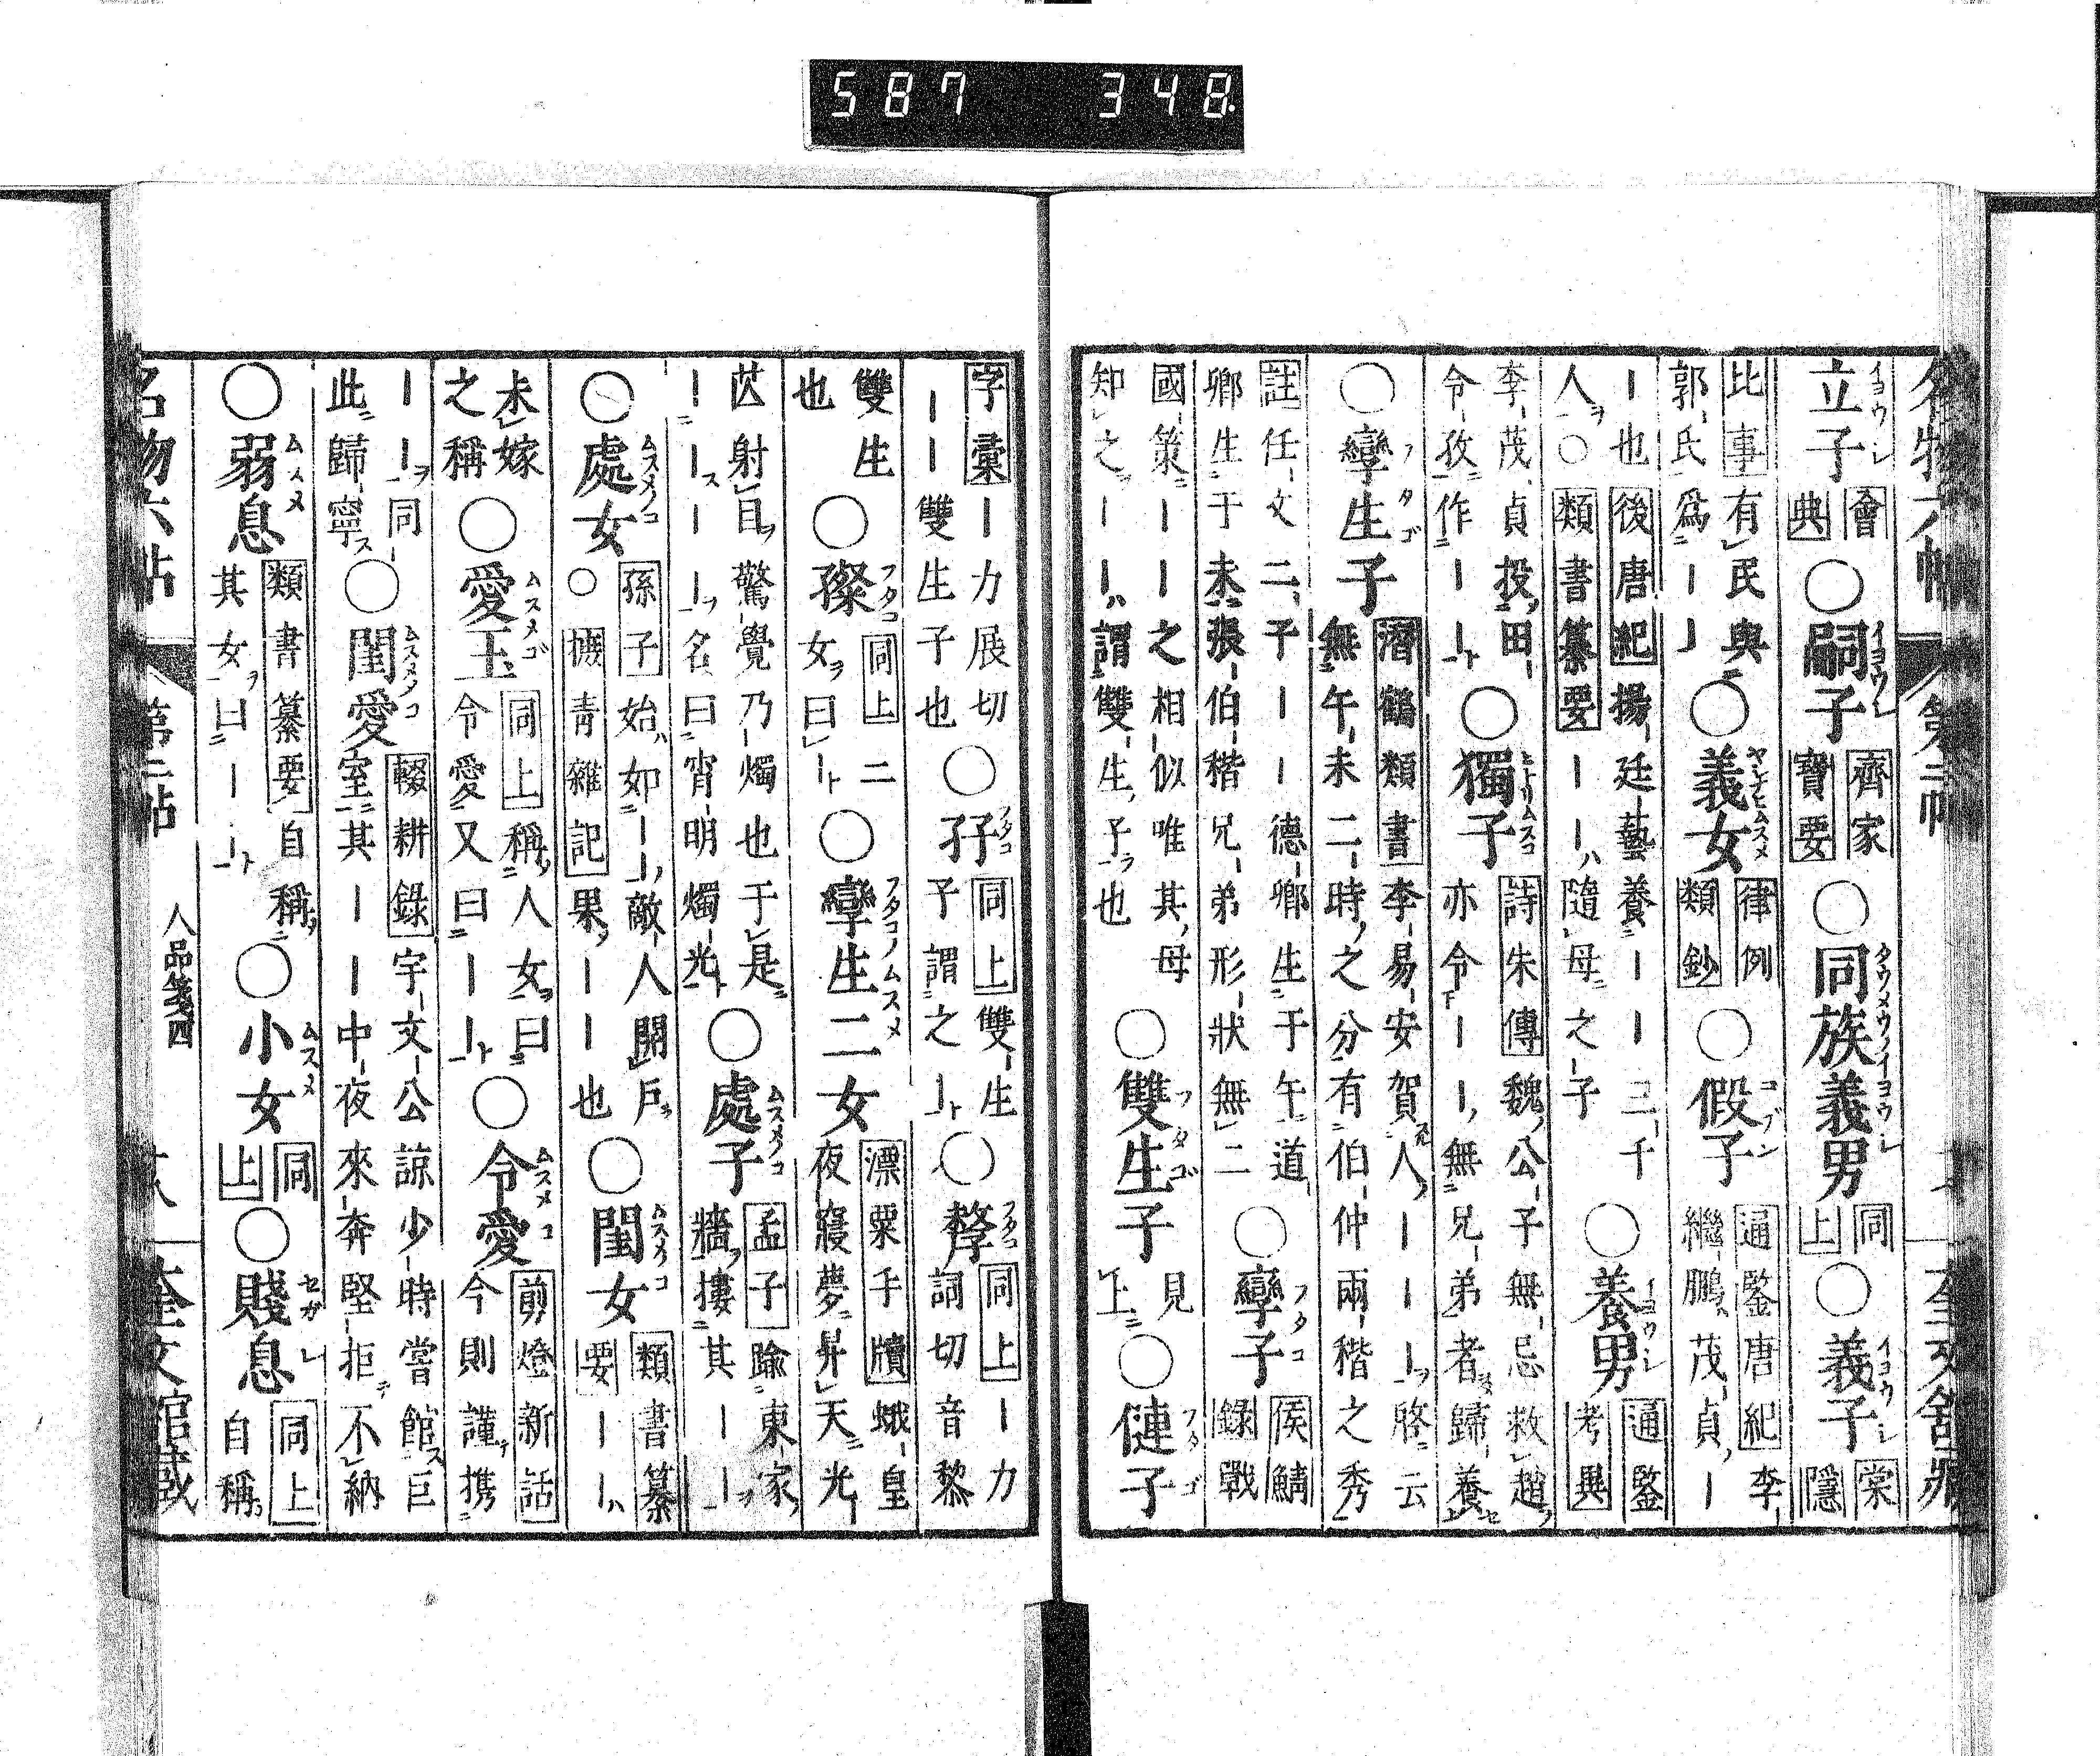 587 348
名物六帖 第二帖 奎文舘藏
立子 會典 ○嗣子 齊家寶要 ○同族義男 同上 ○義子 棠隱
比事 有民與郭氏爲｜｜ ○義女 律例類鈔 ○假子 通鑒唐紀 李繼鵬茂貞｜
｜也 後唐紀 揚廷藝養｜｜三千人○ 類書纂要 ｜｜隨母之子 ○養男 通鑒考異
李茂貞投田令孜作｜｜ ○獨子 詩朱傳 魏公子無忌救趙亦令｜｜無兄弟者歸養
○孿生子 潛鶴類書 李易安賀人｜｜｜啓云無午未二時之分有伯仲兩楷之秀
註 任文二子｜｜德卿生于午道卿生于未張伯楷兄弟形狀無二 ○孿子 侯鯖錄 戰
國策｜｜之相似唯其母知之｜｜謂雙生子也 ○雙生子 見上 ○僆子
字彙 ｜力展切｜｜雙生子也 ○孖 同上 雙生子謂之｜ ○孷 同上 ｜力詞切音黎
雙生也 ○㜗 同上 二女曰｜ ○孿生二女 漂粟手牘 蛾皇夜寢夢昇天光
芒射目驚覺乃燭也于是｜｜｜｜名曰宵明燭光 ○處子 孟子 踰東家牆摟其｜｜
○處女 孫子 始如｜｜敵人開戶○ 摭青雜記 果｜｜也 ○閨女 類書纂要 ｜｜
未嫁之稱 ○愛玉 同上 稱人女曰令愛又曰｜｜ ○令愛 剪燈新話 今則謹携
｜｜同此歸寧 ○閨愛 輟耕錄 宇文公諒少時嘗館巨室其｜｜中夜來奔堅拒不納
○弱息 類書纂要 自稱其女曰｜｜ ○小女 同上 ○賤息 同上 自稱
名物六帖 第二帖 人品箋四 奎文舘藏